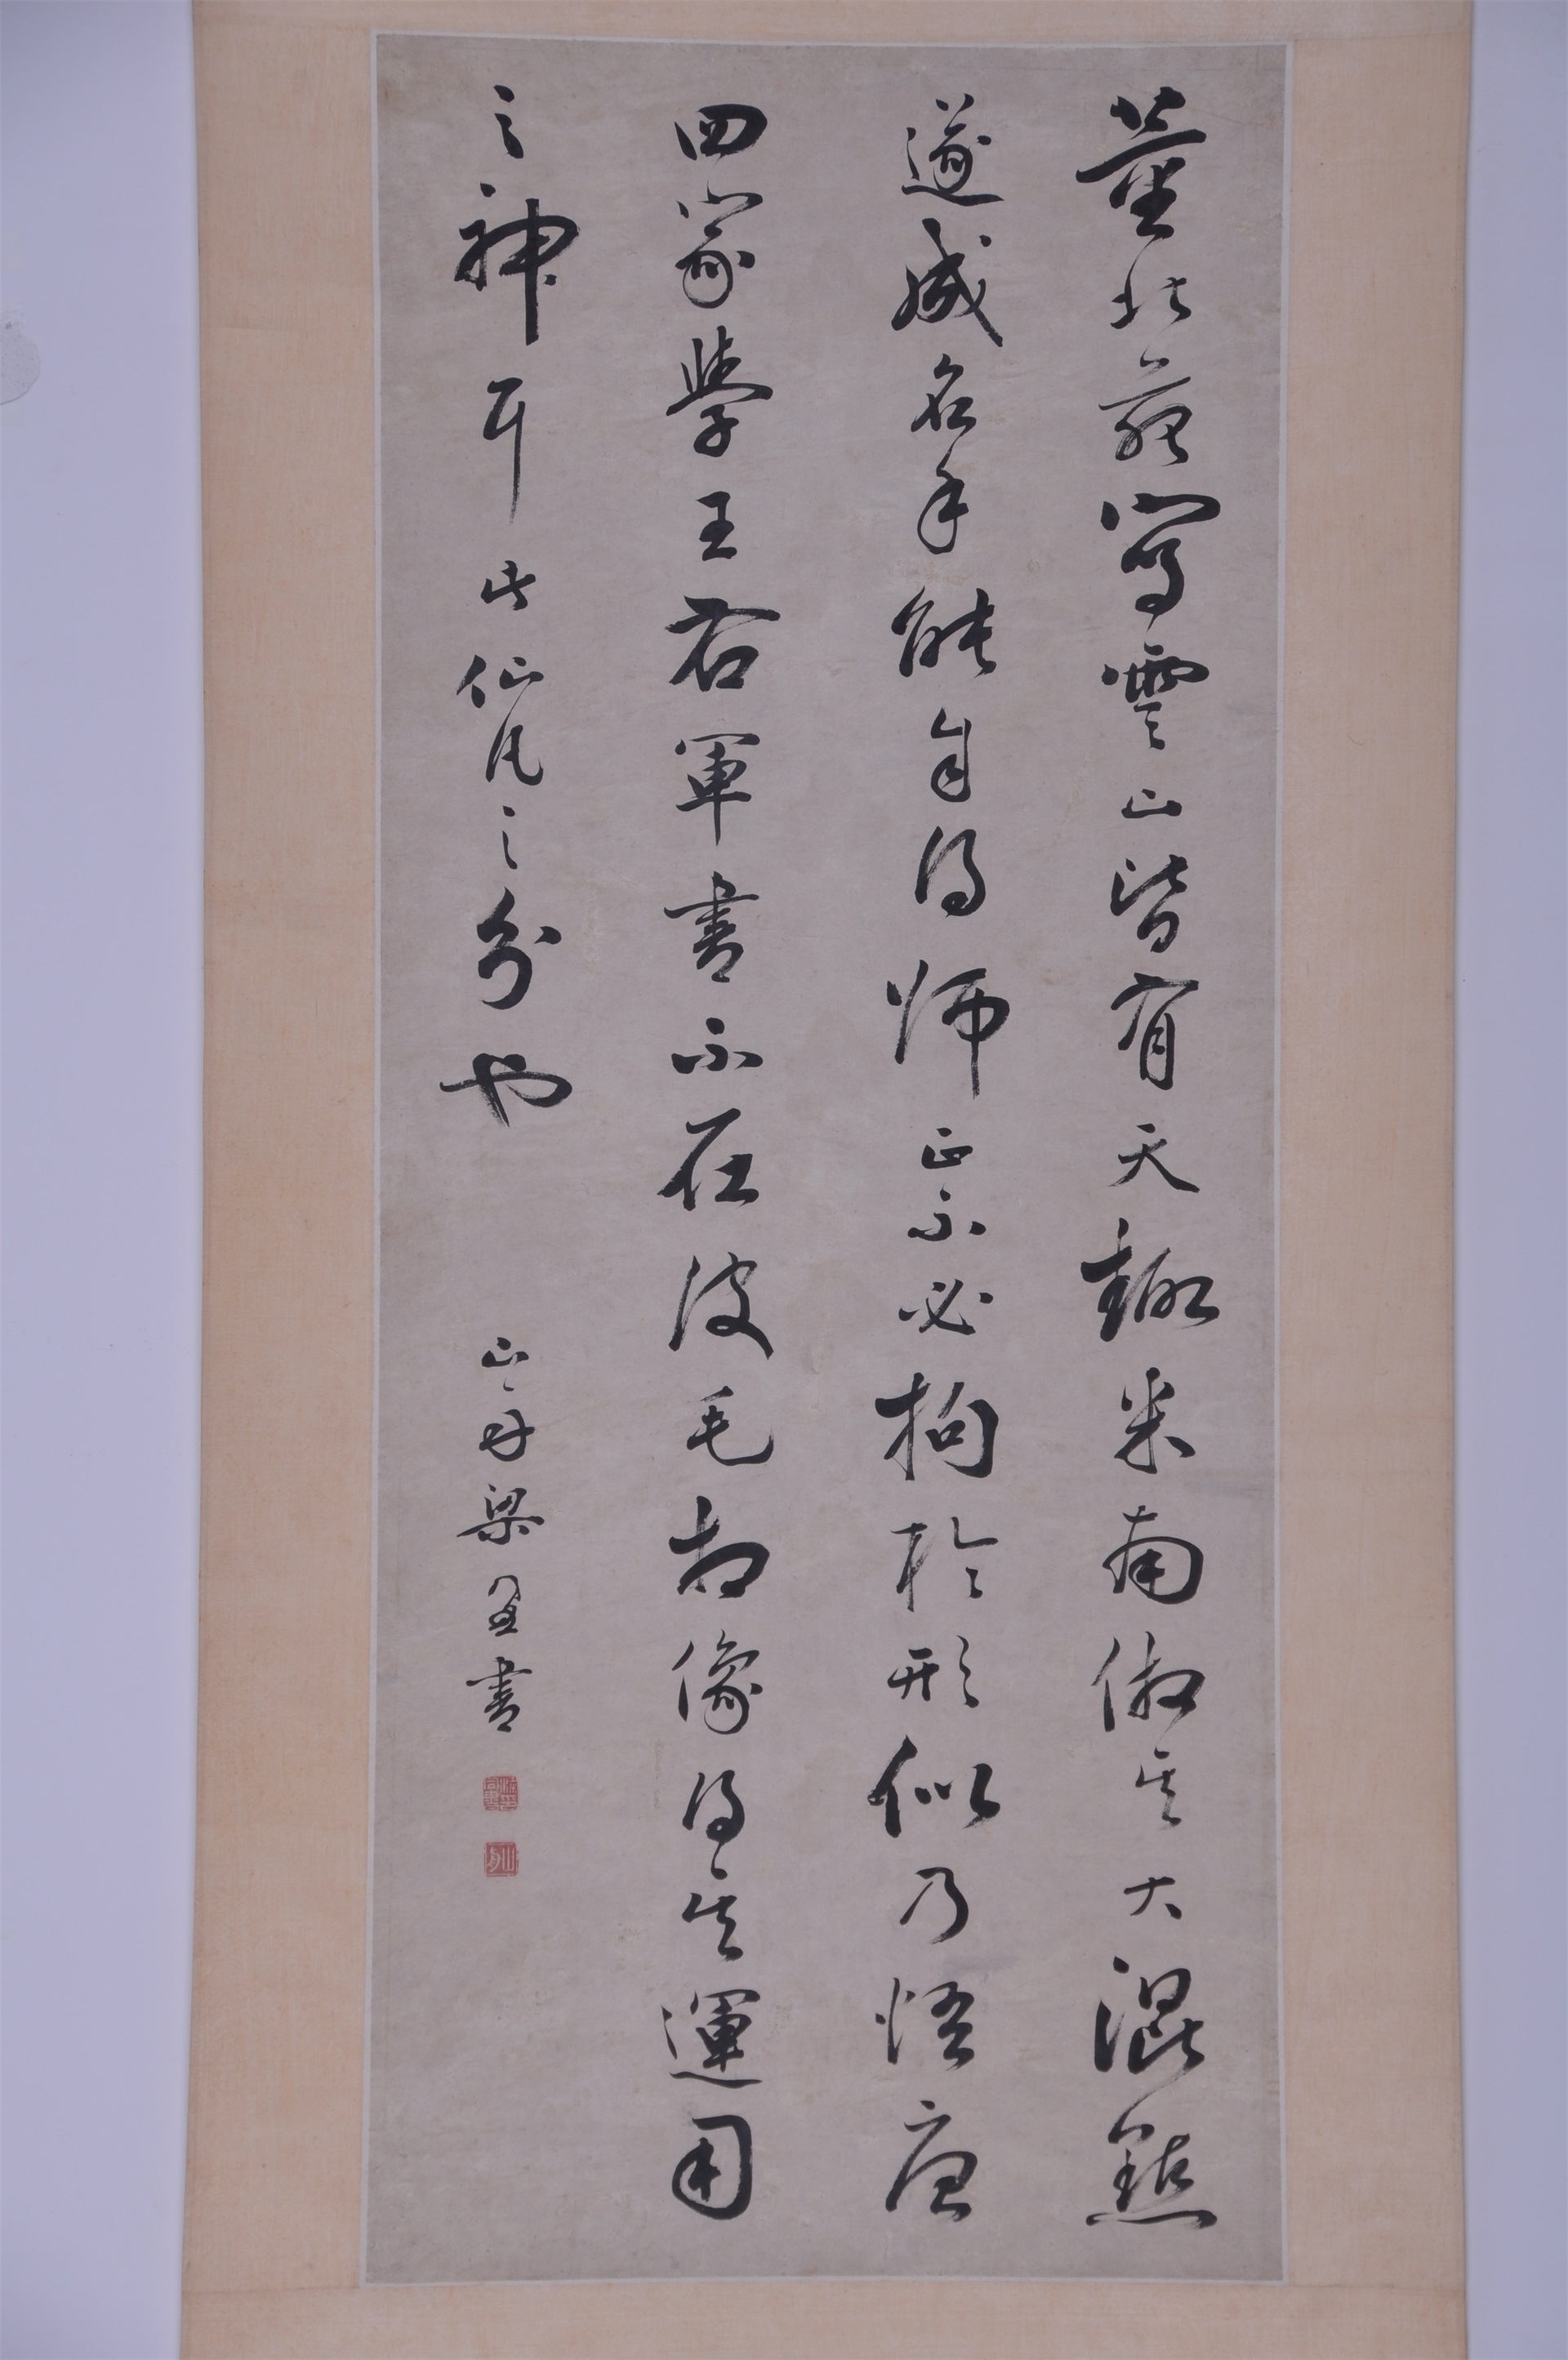 董北苑寫雲山皆有天趣米南倣其大混點
遂成名手能自得師正不必拘於形似乃悟唐
四家學王右軍書不在皮毛相像得其運用
之神耳此仙凡之分也
山舟梁同書